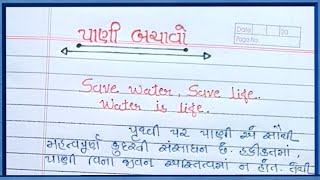 પાણી બચાવો
Date
Page No.
Save water, Save life.
Water is life.
પૃથ્વી પર પાણી એ સૌથી
મહત્વપૂર્ણ કુદરતી સંસાધન છે. હકીકતમાં,
પાણી વિના જીવન અસ્તિત્વમાં ન હોત. તેથી